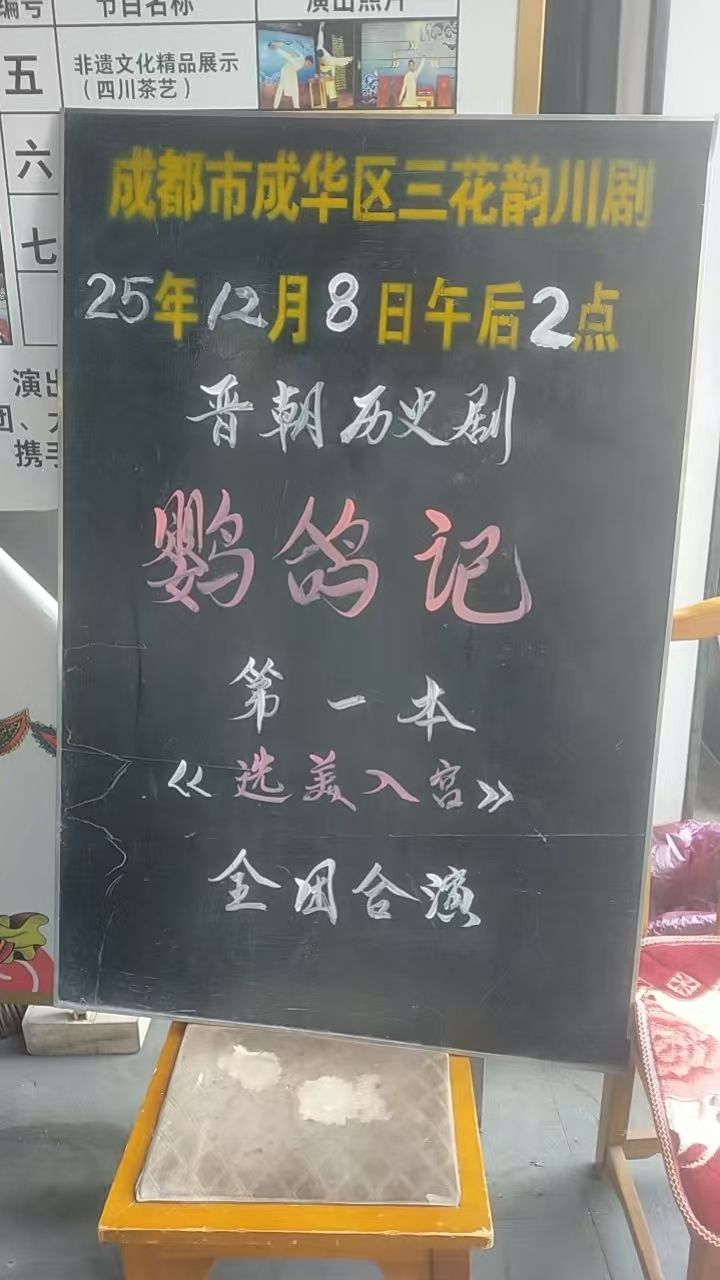 编号 节目名称 演出照片
五 非遗文化精品展示
（四川茶艺）
六
七
演出
团、
携手
成都市成华区三花韵川剧
25年12月8日午后2点
晋朝历史剧
鹦鸽记
第一本
《选美入宫》
全团合演